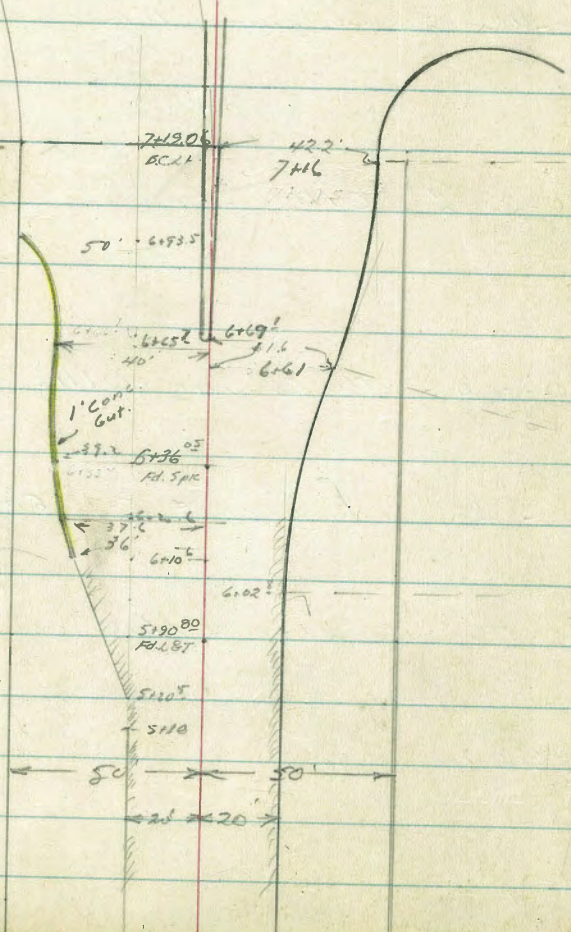 7+19.06
B.C. Lt
42.2'
7+16
50'
6+93.5
6+65
40'
6+69
6+61
1' Conc
Gut.
39.2
6+36.05
Fd. Spk
37.6
36'
6+10.6
6+02
5+90.80
Fd. L&T
5+20.5
5+10
50'
50'
20'
20'